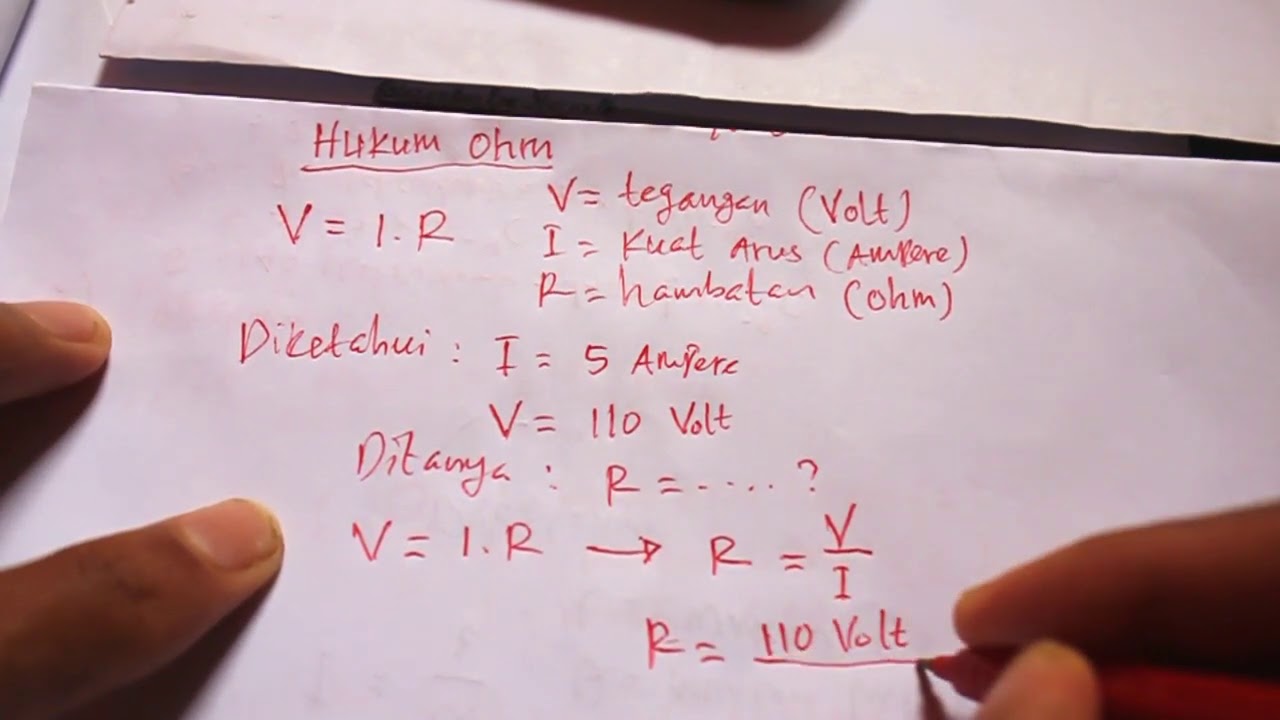 Hukum Ohm
V = I . R
V = tegangan (Volt)
I = Kuat Arus (Ampere)
R = hambatan (ohm)
Diketahui : I = 5 Ampere
V = 110 Volt
Ditanya : R = ..... ?
V = I . R → R = V/I
R = 110 Volt